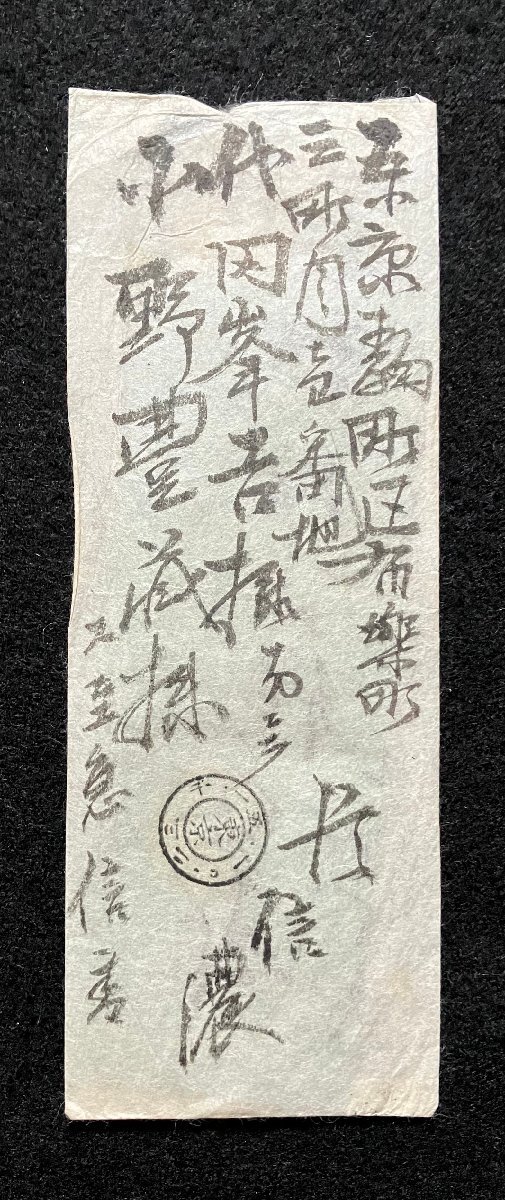 東京麹町区有楽町
三町目壱番地
田峯吉様方ニテ
小野豊蔵様
大至急信書
信
濃
東京